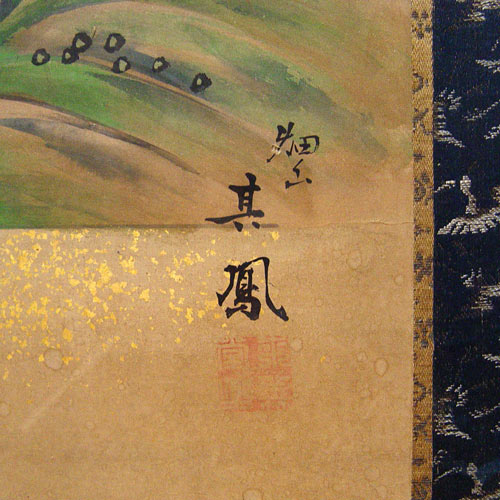 畑山
其鳳